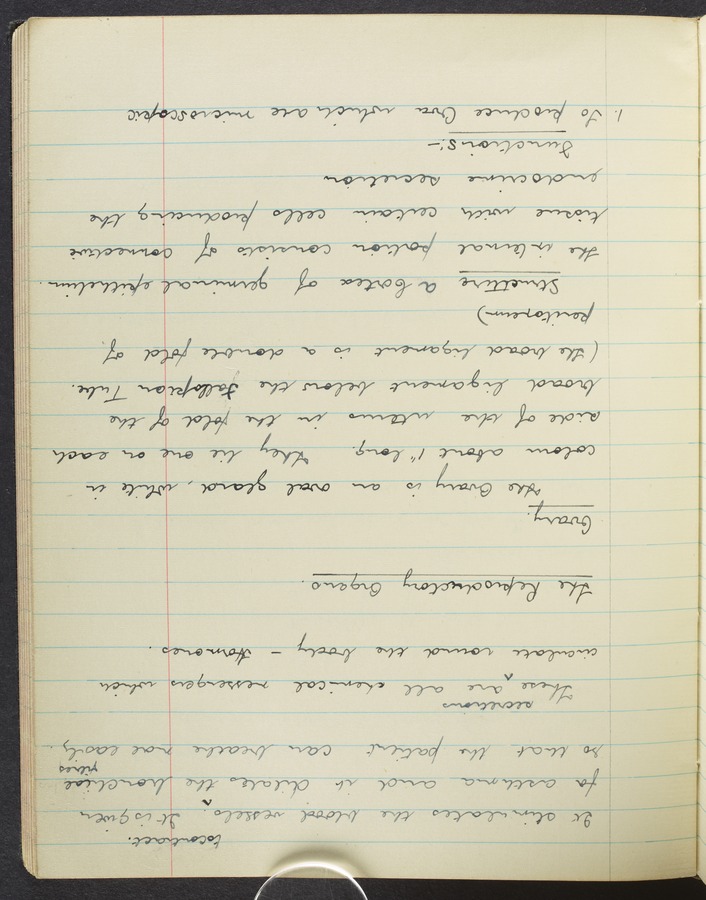 to contract.
It stimulates the blood vessels ^. It is given
for asthma and it dilates the bronchiole
tubes
so that the patient can breathe more easily.
secretions
These ^ are all chemical messengers which
circulate round the body - Hormones.
The Reproductory Organs.
Ovary.
The Ovary is an oval gland, white in
colour about 1" long. They lie one on each
side of the uterus in the fold of the
broad ligament below the Fallopian Tube.
(The broad ligament is a double fold of
peritoneum)
Structure a Cortex of germinal epithelium.
the internal portion consists of connective
tissue with certain cells producing the
endocrine secretion
Functions:-
1. To produce Ova which are microscopic